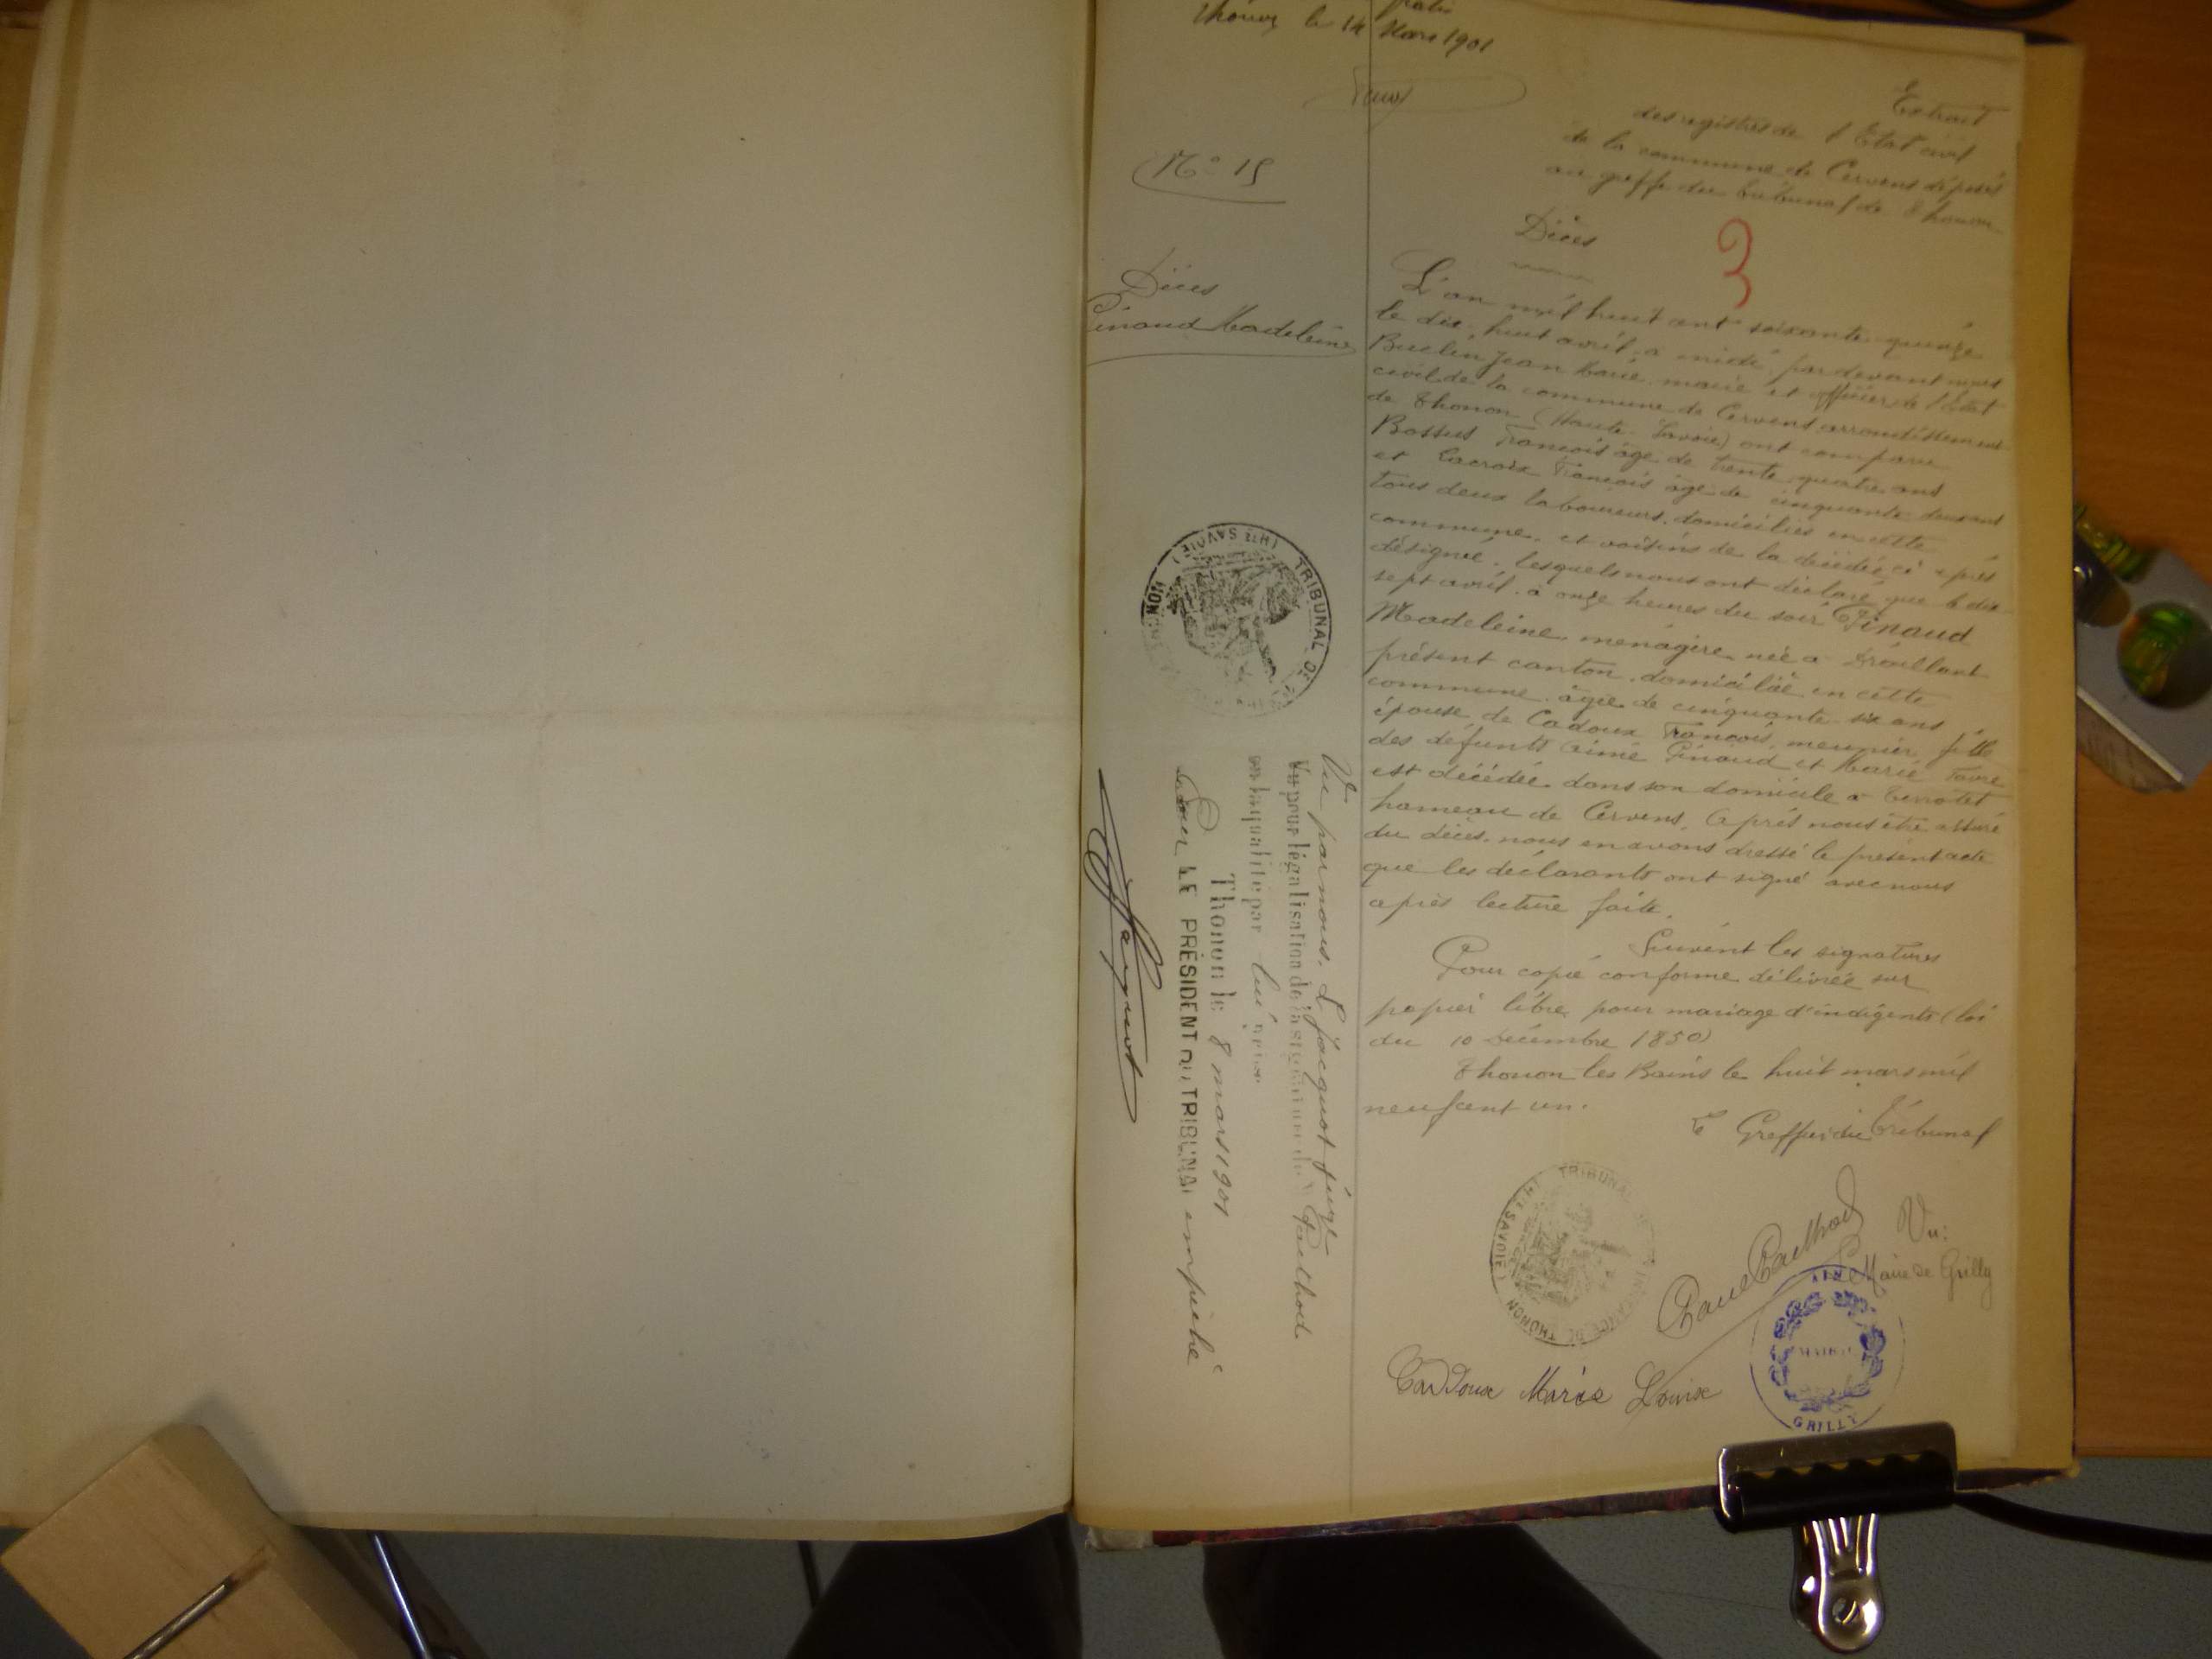 gratis
le 14 Mars 1901
N° 15
Décès
Pinaud Madeleine
Extrait
des registres de l'Etat civil
de la commune de Cervens déposés
au greffe du tribunal de Thonon
Décès
3
L'an mil huit cent soixante quinze
le dix huit avril a midi, par devant nous
Buclin Jean Marie, maire et officier de l'Etat
civil de la commune de Cervens arrondissement
de Thonon (Haute-Savoie) ont comparu
Bossus François âgé de trente quatre ans
et Lacroix François âgé de cinquante deux ans
tous deux laboureurs, domiciliés en cette
commune, et voisins de la décédée ci après
désignée, lesquels nous ont déclaré que le dix
sept avril, à onze heures du soir Pinaud
Madeleine, menagère, née a Draillant
présent canton, domiciliée en cette
commune, âgée de cinquante six ans
épouse de Cadoux François, meunier, fille
des défunts Aimé Pinaud et Marie Favre
est décédée dans son domicile a Terrotet
hameau de Cervens. Après nous être assuré
du décès, nous en avons dressé le présent acte
que les déclarants ont signé avec nous
après lecture faite.
Suivent les signatures
Pour copie conforme délivrée sur
papier libre, pour mariage d'indigents (loi
du 10 Décembre 1850)
Thonon les Bains le huit mars mil
neuf cent un.
Le Greffier du Tribunal
TRIBUNAL DE THONON (HTE SAVOIE)
Vu par nous, L. Jacquot juge
Vu pour légalisation de la signature de Paulhod
en sa qualité par lui prise
Thonon le 8 mars 1901
Pour LE PRÉSIDENT DU TRIBUNAL empêché
Jacquot
TRIBUNAL THONON (HTE SAVOIE)
Vu:
Le Maire de Grilly
AIN
MAIRIE
GRILLY
Caddoux Marie Louise